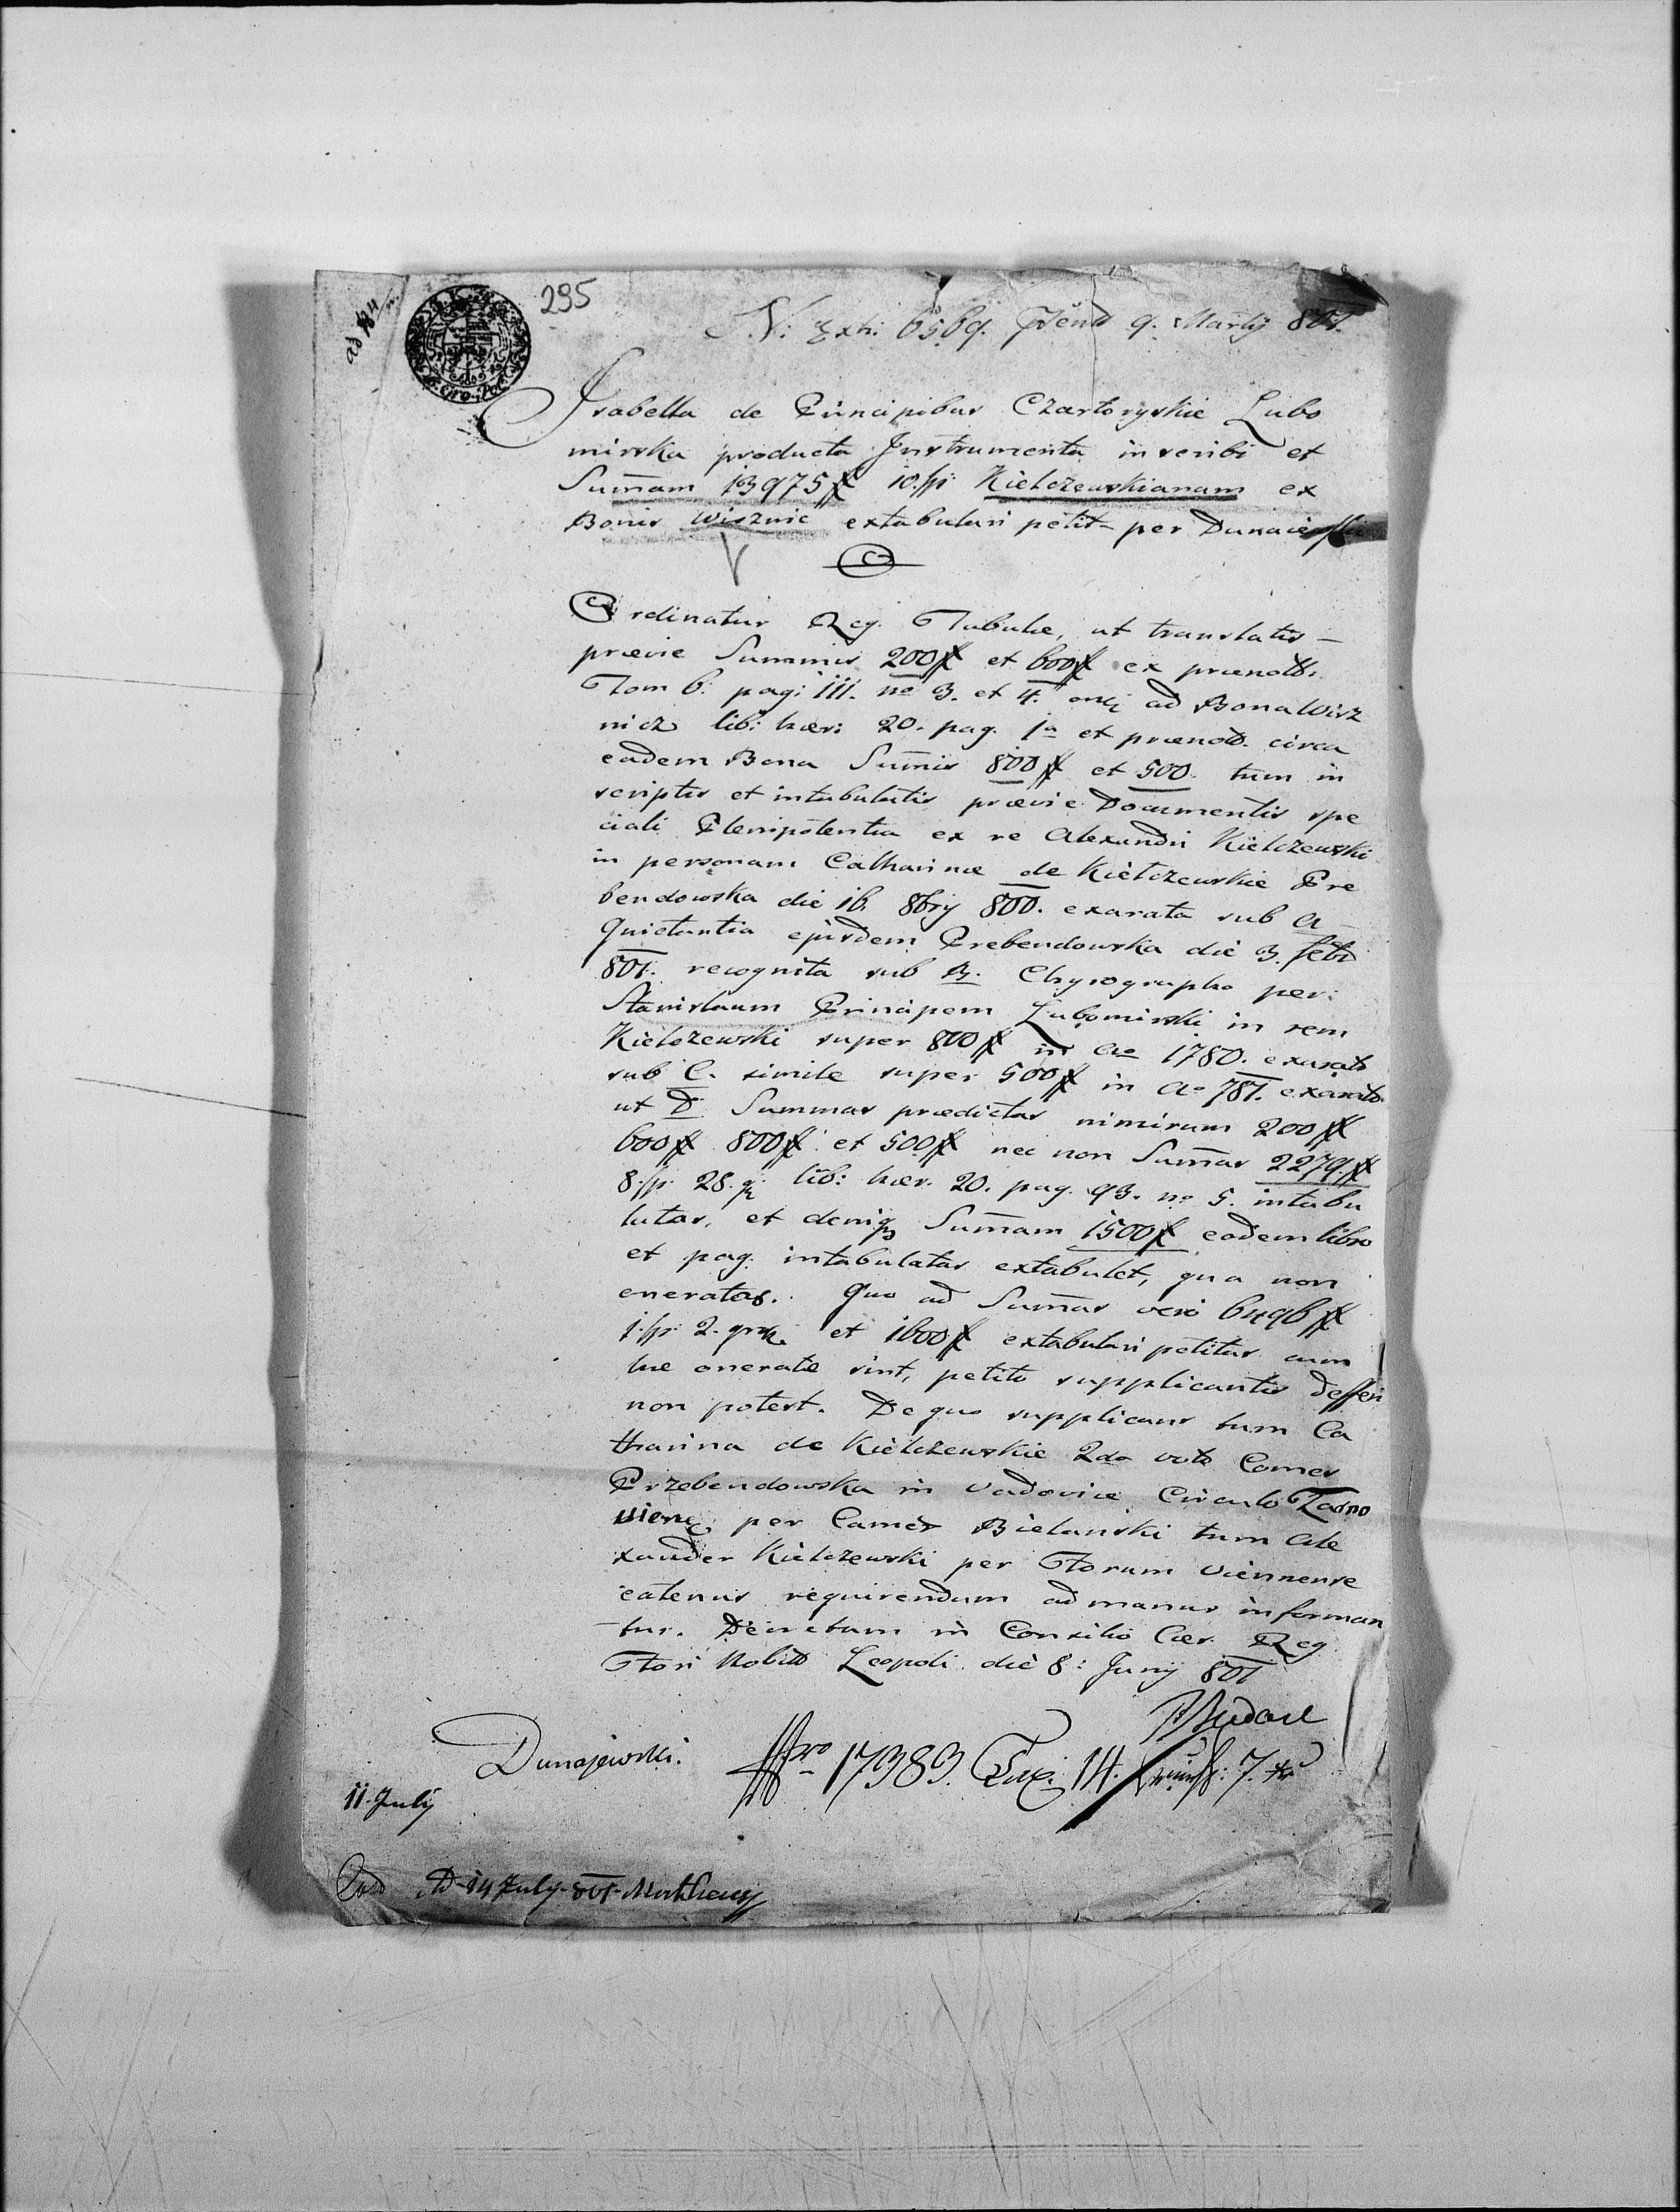 ad 84/n.
295
6. Cro. Pol.
N: Exh: 6569. Psend 9. Martij 801.
Isabella de Principibus Czartoryskie Lubo
mirska producta Instrumenta inscribi et
Summam 13975 f 10. fp: Kiełczewskianam ex
Bonis Wisznic extabulari petit - per Dunaiewski
Ordinatur Reg. Tabulae, ut translatis -
praevie Summis 200 f et 600 f ex praenott.
Tom 6. pag: 111. no 3. et 4. ad Bona Wisz
nicz lib: haer: 20. pag. 1a et praenott. circa
eadem Bona Summis 800 f et 500. tum in
scriptis et intabulatis praevie Documentis spe
ciali Plenipotentia ex re Alexandri Kiełczewski
in personam Catharinae de Kiełczewskie Pre
bendowska die 16. 8bry 800. exarata sub A
Quietantia ejusdem Prebendowska die 3. febr
801. recognita sub B. Chyrographo per
Stanislaum Principem Lubomirski in rem
Kiełczewski super 800 f in Ao 1780. exarato
sub C. simile super 500 f in Ao 781. exarato
ut D Summas praedictas nimirum 200 f
600 f 800 f et 500 f nec non Summas 2279. f
8. fp. 28. g lib: haer. 20. pag. 93. no 5. intabu
latas, et deniq Summam 1500 f eodem libro
et pag. intabulatas extabulet, qua non
oneratas. Quo ad Summas vero 6496 f
1. fp: 2. et 1600 f extabulari petitas cum
hae oneratae sint, petito supplicantis defferi
non potest. De quo supplicans tum Ca
tharina de Kiełczewskie 2do voto Comes
Przebendowska in Vadovice Circulo Tarno
vien per Camer Bielanski tum Ale
xander Kiełczewski per Forum Viennense
eatenus requirendum ad manus informan
tur. Decretum in Consilio Caes. Reg
Fori Nobilit Leopoli die 8: Junij 801
Dunajewski. Nro 17383. Exp. 14. 7.
11. July
14 July 801